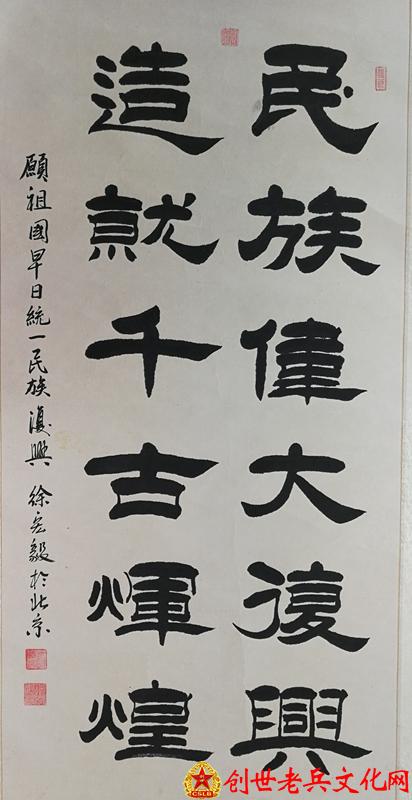 民族偉大復興
造就千古輝煌
願祖國早日統一民族復興 徐宏毅於北京
创世老兵文化网
CSLB